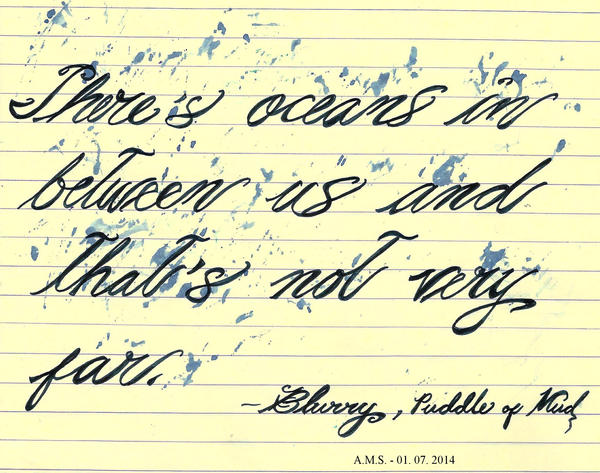 There's oceans in
between us and
that's not very
far.
- Blurry, Puddle of Mud
A.M.S. - 01. 07. 2014